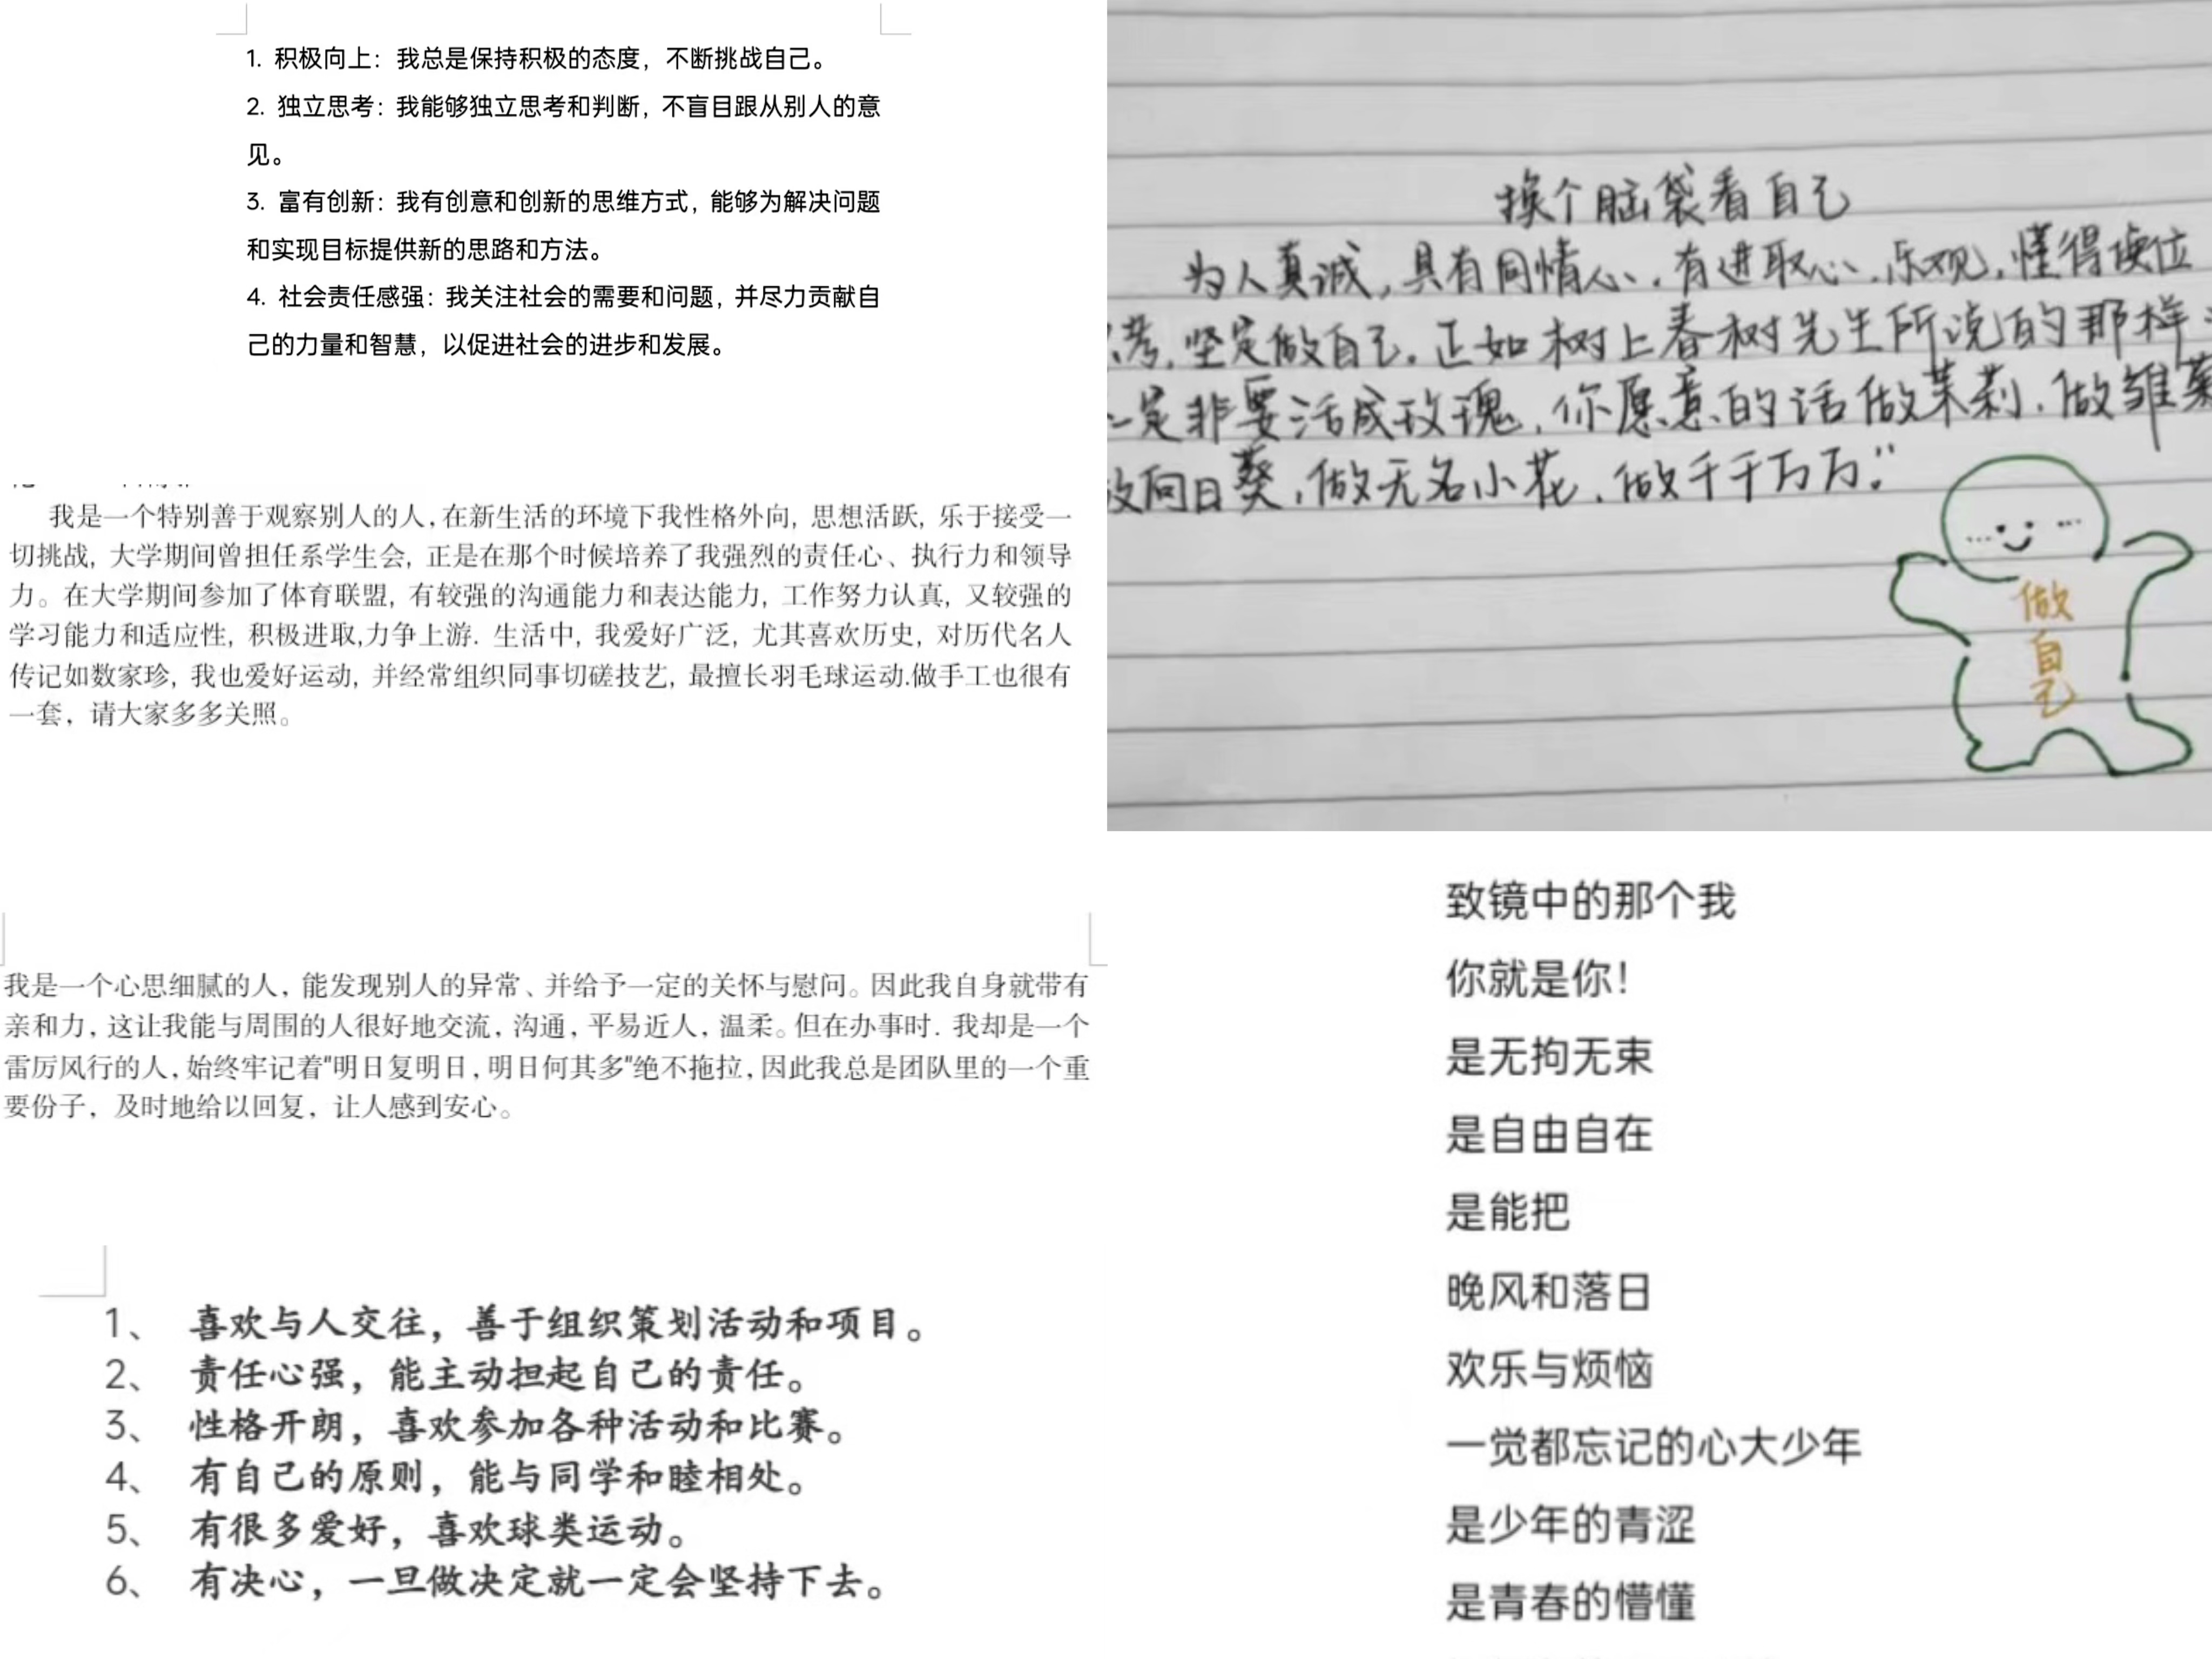 1. 积极向上：我总是保持积极的态度，不断挑战自己。
2. 独立思考：我能够独立思考和判断，不盲目跟从别人的意
见。
3. 富有创新：我有创意和创新的思维方式，能够为解决问题
和实现目标提供新的思路和方法。
4. 社会责任感强：我关注社会的需要和问题，并尽力贡献自
己的力量和智慧，以促进社会的进步和发展。
我是一个特别善于观察别人的人,在新生活的环境下我性格外向, 思想活跃, 乐于接受一
切挑战, 大学期间曾担任系学生会, 正是在那个时候培养了我强烈的责任心、执行力和领导
力。在大学期间参加了体育联盟, 有较强的沟通能力和表达能力, 工作努力认真, 又较强的
学习能力和适应性, 积极进取,力争上游. 生活中, 我爱好广泛, 尤其喜欢历史, 对历代名人
传记如数家珍, 我也爱好运动, 并经常组织同事切磋技艺, 最擅长羽毛球运动.做手工也很有
一套，请大家多多关照。
我是一个心思细腻的人, 能发现别人的异常、并给予一定的关怀与慰问。因此我自身就带有
亲和力, 这让我能与周围的人很好地交流, 沟通, 平易近人, 温柔。但在办事时. 我却是一个
雷厉风行的人, 始终牢记着"明日复明日, 明日何其多"绝不拖拉, 因此我总是团队里的一个重
要份子，及时地给以回复，让人感到安心。
1、 喜欢与人交往，善于组织策划活动和项目。
2、 责任心强，能主动担起自己的责任。
3、 性格开朗，喜欢参加各种活动和比赛。
4、 有自己的原则，能与同学和睦相处。
5、 有很多爱好，喜欢球类运动。
6、 有决心，一旦做决定就一定会坚持下去。
换个脑袋看自己
为人真诚,具有同情心.有进取心.乐观,懂得换位
考,坚定做自己.正如树上春树先生所说的那样
一定非要活成玫瑰,你愿意的话做茉莉.做雏菊
向日葵,做无名小花.做千千万万."
做
自
己
致镜中的那个我
你就是你！
是无拘无束
是自由自在
是能把
晚风和落日
欢乐与烦恼
一觉都忘记的心大少年
是少年的青涩
是青春的懵懂